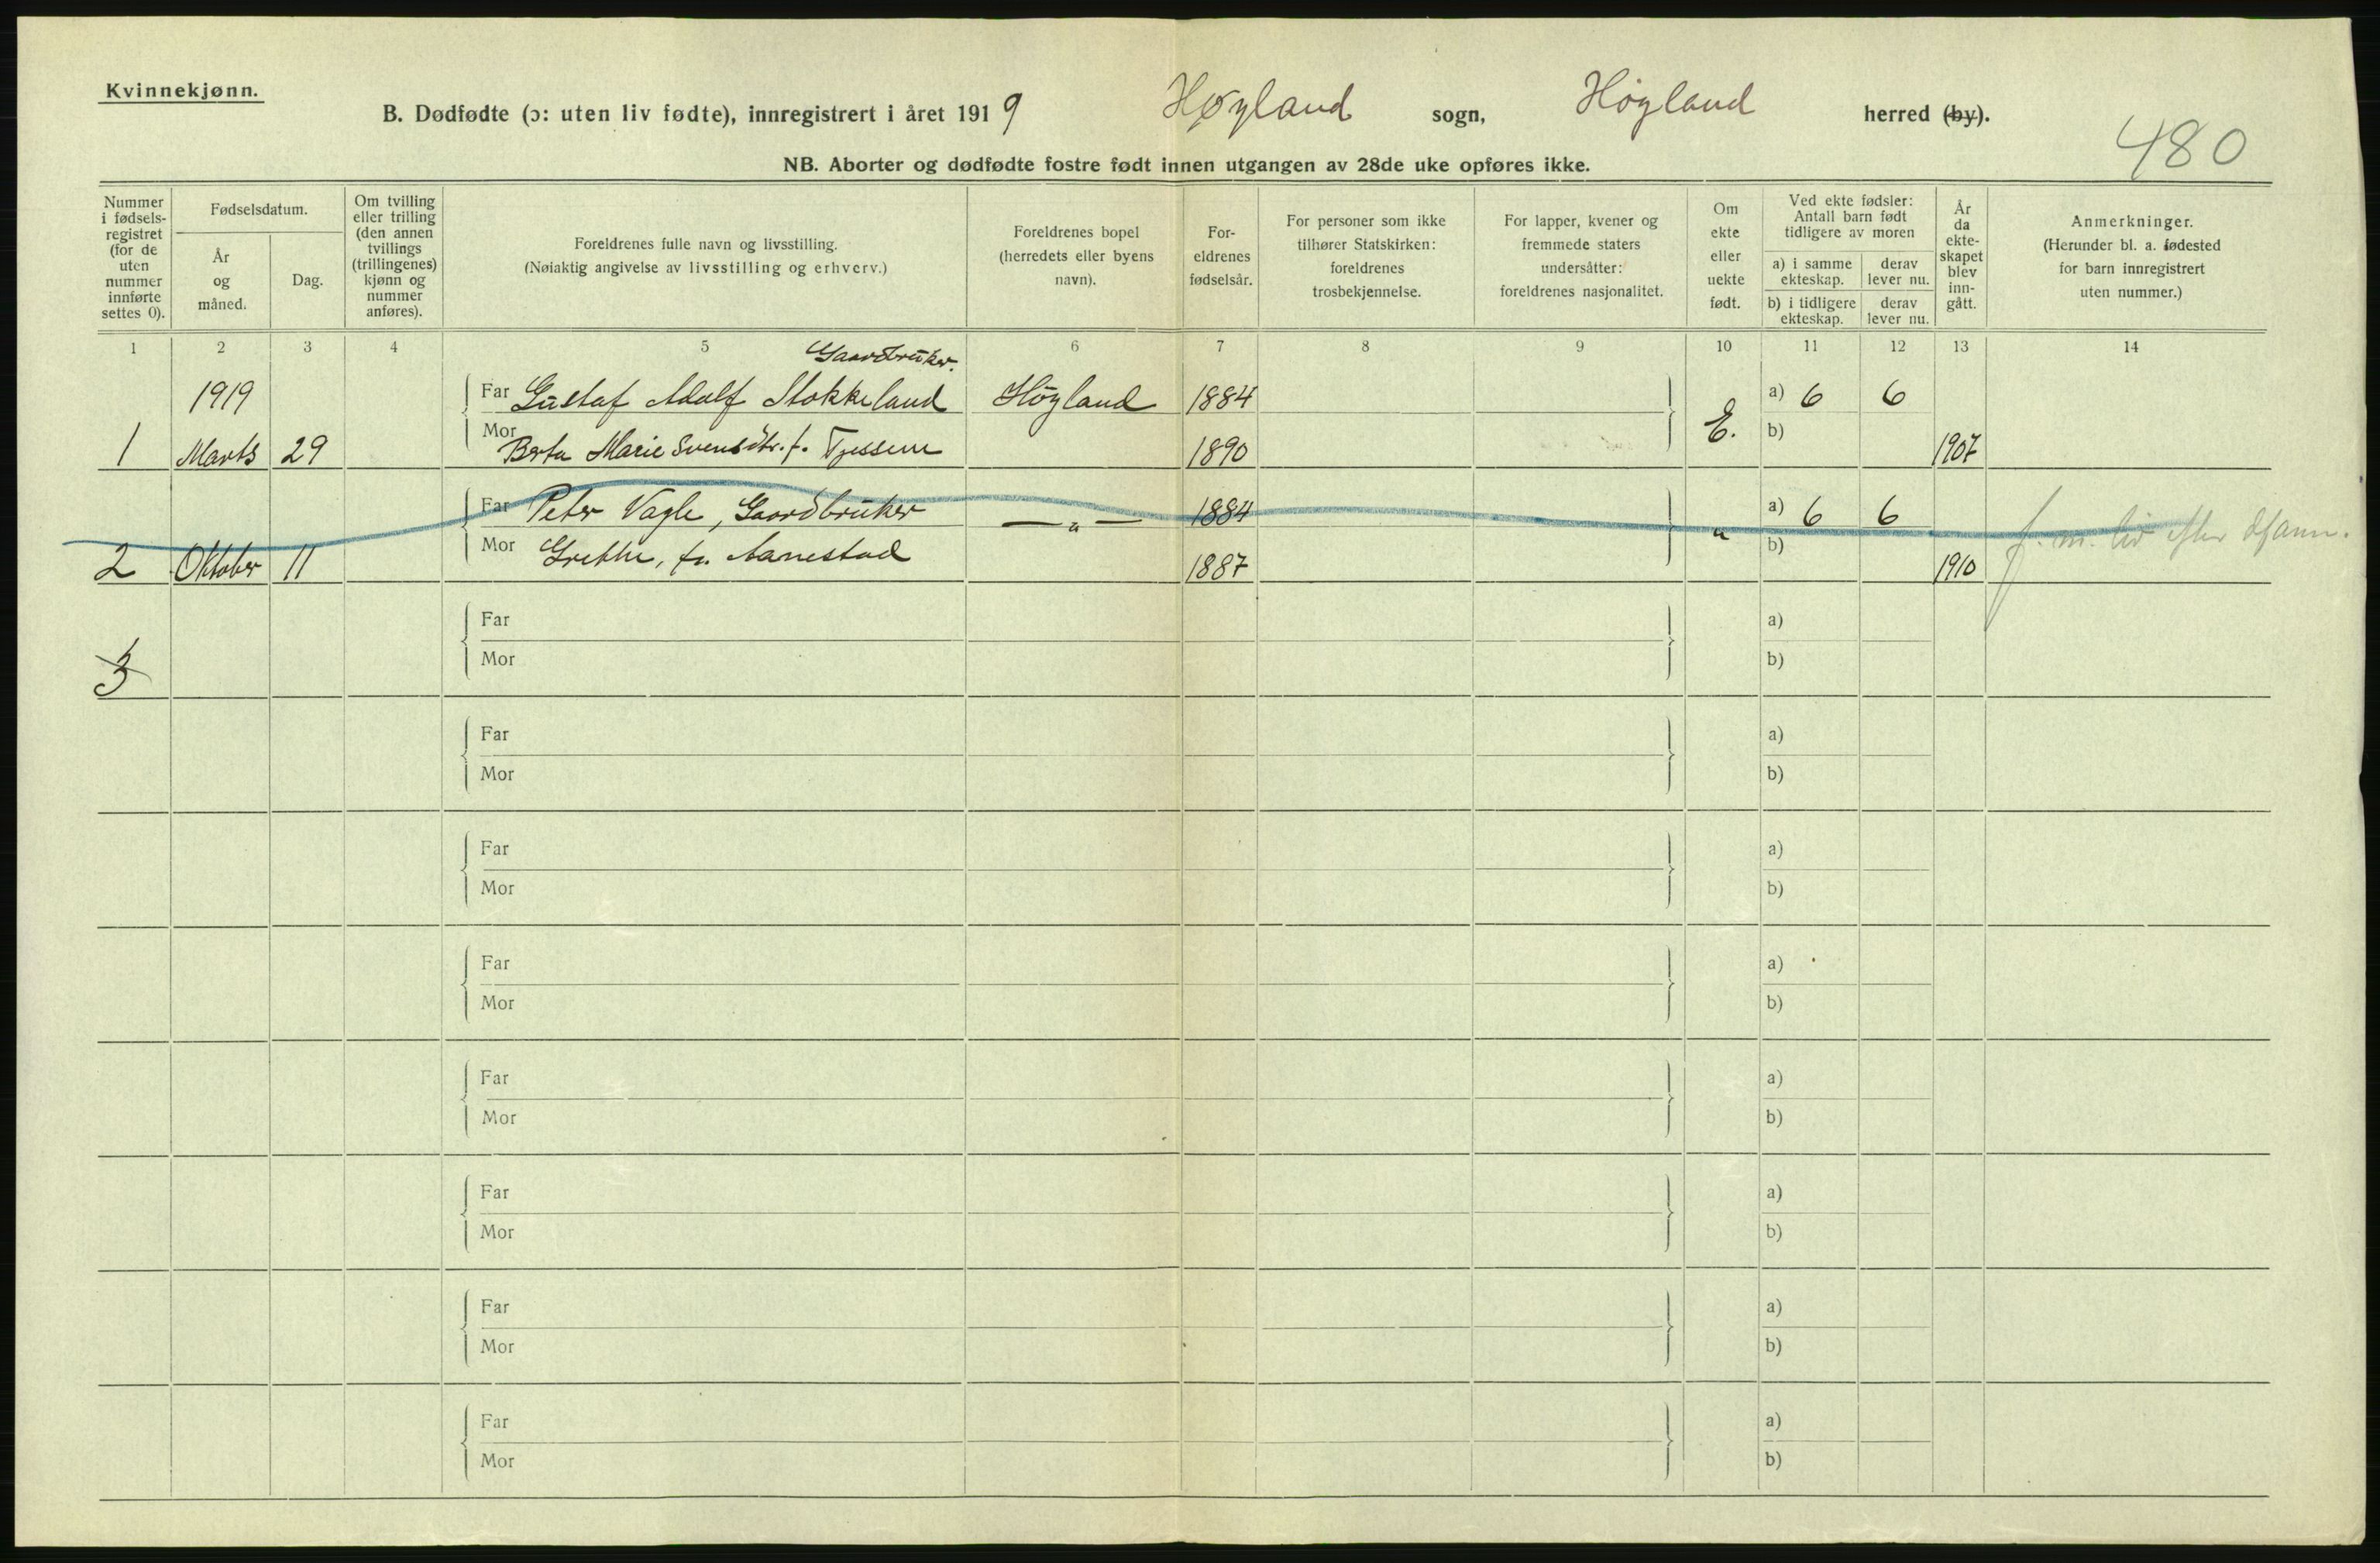 Kvinnekjønn.
B. Dødfødte (ɔ: uten liv fødte), innregistrert i året 1919 Høyland sogn, Höyland herred (by).
480
NB. Aborter og dødfødte fostre født innen utgangen av 28de uke opføres ikke.
Nummer
i fødsels-
registret
(for de
uten
nummer
innførte
settes 0).
Fødselsdatum.
År
og
måned.
Dag.
Om tvilling
eller trilling
(den annen
tvillings
(trillingenes)
kjønn og
nummer
anføres).
Foreldrenes fulle navn og livsstilling.
(Nøiaktig angivelse av livsstilling og erhverv.)
Foreldrenes bopel
(herredets eller byens
navn).
For-
eldrenes
fødselsår.
For personer som ikke
tilhører Statskirken:
foreldrenes
trosbekjennelse.
For lapper, kvener og
fremmede staters
undersåtter:
foreldrenes nasjonalitet.
Om
ekte
eller
uekte
født.
Ved ekte fødsler:
Antall barn født
tidligere av moren
a) i samme
ekteskap.
derav
lever nu.
b) i tidligere
ekteskap.
derav
lever nu.
År
da
ekte-
skapet
blev
inn-
gått.
Anmerkninger.
(Herunder bl. a. fødested
for barn innregistrert
uten nummer.)
1 2 3 4 5 6 7 8 9 10 11 12 13 14
Gaardbruker.
1919 Far Gustaf Adolf Stokkeland Höyland 1884 E. a) 6 6
1 Marts 29 Mor Berta Marie Svensdtr. f. Tjessem 1890 b) 1907
Far Peter Vagle, Gaardbruker — " — 1884 " a) 6 6 f. m. liv efter
2 Oktober 11 Mor Grethe, f. Aanestad 1887 b) 1910
Far a)
3 Mor b)
Far a)
Mor b)
Far a)
Mor b)
Far a)
Mor b)
Far a)
Mor b)
Far a)
Mor b)
Far a)
Mor b)
Far a)
Mor b)